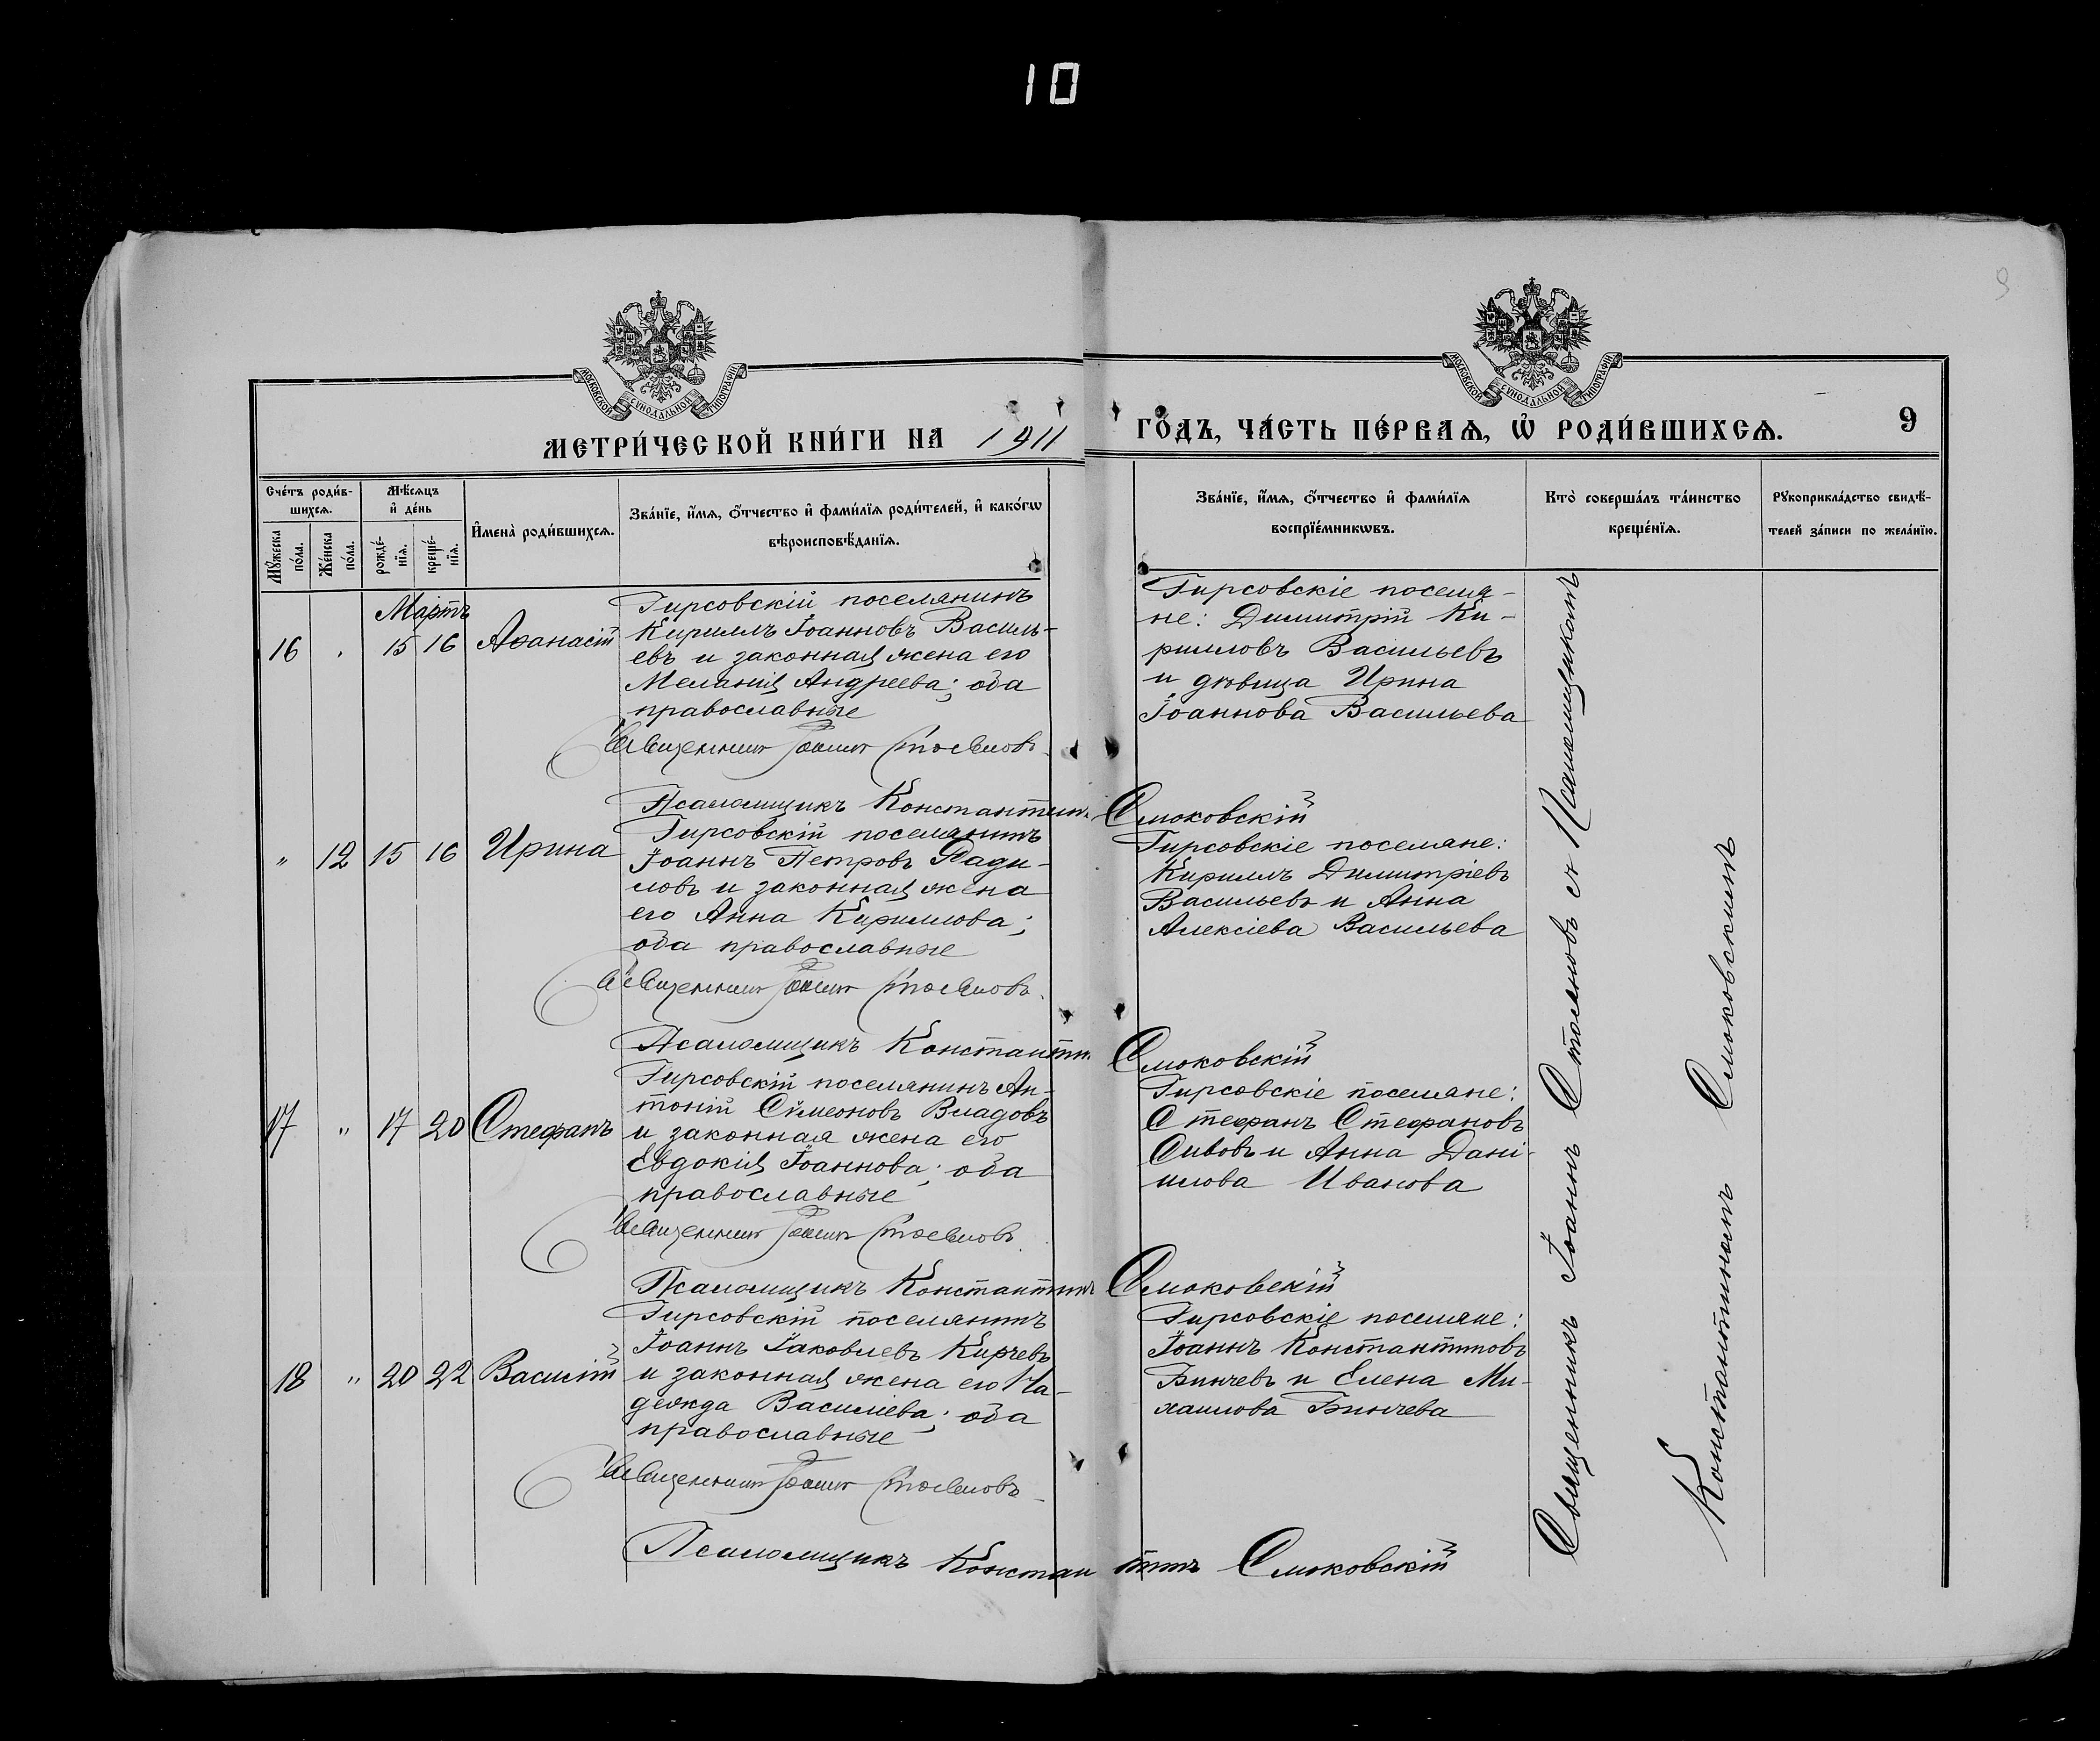 10
9
МОСКОВСКОЙ СУНОДАЛЬНОЙ ТИПОГРАФІИ
МОСКОВСКОЙ СУНОДАЛЬНОЙ ТИПОГРАФІИ
МЕТРИ́ЧЕСКОЙ КНИ́ГИ НА 1911
ГО́ДЪ, ЧА́СТЬ ПЕ́РВАѦ, Ѡ҆ РОДИ́ВШИХСѦ.
9
Сче́тъ роди́в-
шихсѧ.
Мѣ́сѧцъ
и҆ де́нь
Мꙋ́жеска по́ла.
Же́нска по́ла.
рожде́-
нїѧ.
креще́-
нїѧ.
И҆мена̀ роди́вшихсѧ.
Зва́нїе, и҆́мѧ, ѻ҆́тчество и҆ фами́лїѧ роди́телей, и҆ како́гѡ
вѣроисповѣ́данїѧ.
Зва́нїе, и҆́мѧ, ѻ҆́тчество и҆ фами́лїѧ
воспрїе́мникѡвъ.
Кто̀ соверша́лъ та́инство
креще́нїѧ.
Рꙋкоприкла́дство свидѣ́-
телей за́писи по жела́нїю.
Мартъ
16 15 16 Аѳанасій
Гирсовскій поселянинъ
Кириллъ Іоанновъ Василь-
евъ и законная жена его
Меланія Андреева; оба
православные
Священникъ Іоаннъ Стояновъ
Псаломщикъ Константинъ Смоковскій
Гирсовскіе поселя-
не: Димитрій Ки-
рилловъ Васильевъ
и дѣвица Ирина
Іоаннова Васильева
" 12 15 16 Ирина
Гирсовскій поселянинъ
Іоаннъ Петровъ Ради-
ловъ и законная жена
его Анна Кириллова;
оба православные
Священникъ Іоаннъ Стояновъ
Псаломщикъ Константинъ Смоковскій
Гирсовскіе поселяне:
Кириллъ Димитріевъ
Васильевъ и Анна
Алексіева Васильева
17 " 17 20 Стефанъ
Гирсовскій поселянинъ Ан-
тоній Симеоновъ Владовъ
и законная жена его
Евдокія Іоаннова; оба
православные
Священникъ Іоаннъ Стояновъ
Псаломщикъ Константинъ Смоковскій
Гирсовскіе поселяне:
Стефанъ Стефановъ
Сивовъ и Анна Дані-
илова Иванова
18 " 20 22 Василій
Гирсовскій поселянинъ
Іоаннъ Іаковлевъ Кирчевъ
и законная жена его На-
дежда Василіева; оба
православные
Священникъ Іоаннъ Стояновъ
Псаломщикъ Константинъ Смоковскій
Гирсовскіе поселяне:
Іоаннъ Константиновъ
Бинчевъ и Елена Ми-
хаилова Бинчева
Священникъ Іоаннъ Стояновъ съ Псаломщикомъ
Константиномъ Смоковскимъ